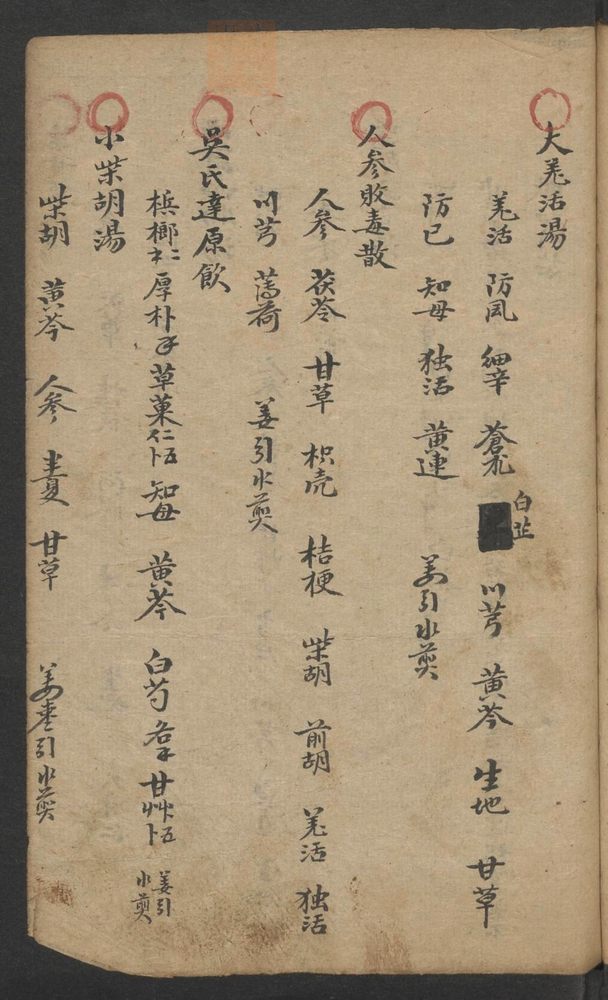 大羌活湯
羌活 防風 細辛 蒼朮 白芷 川芎 黃芩 生地 甘草
防已 知母 独活 黃連 姜引水煎
人参敗毒散
人参 茯苓 甘草 枳壳 桔梗 柴胡 前胡 羌活 独活
川芎 薄荷 姜引水煎
吳氏達原飲
槟榔 厚朴 草菓仁 知母 黃芩 白芍 甘艸 姜引水煎
小柴胡湯
柴胡 黃芩 人参 半夏 甘草 姜枣引水煎